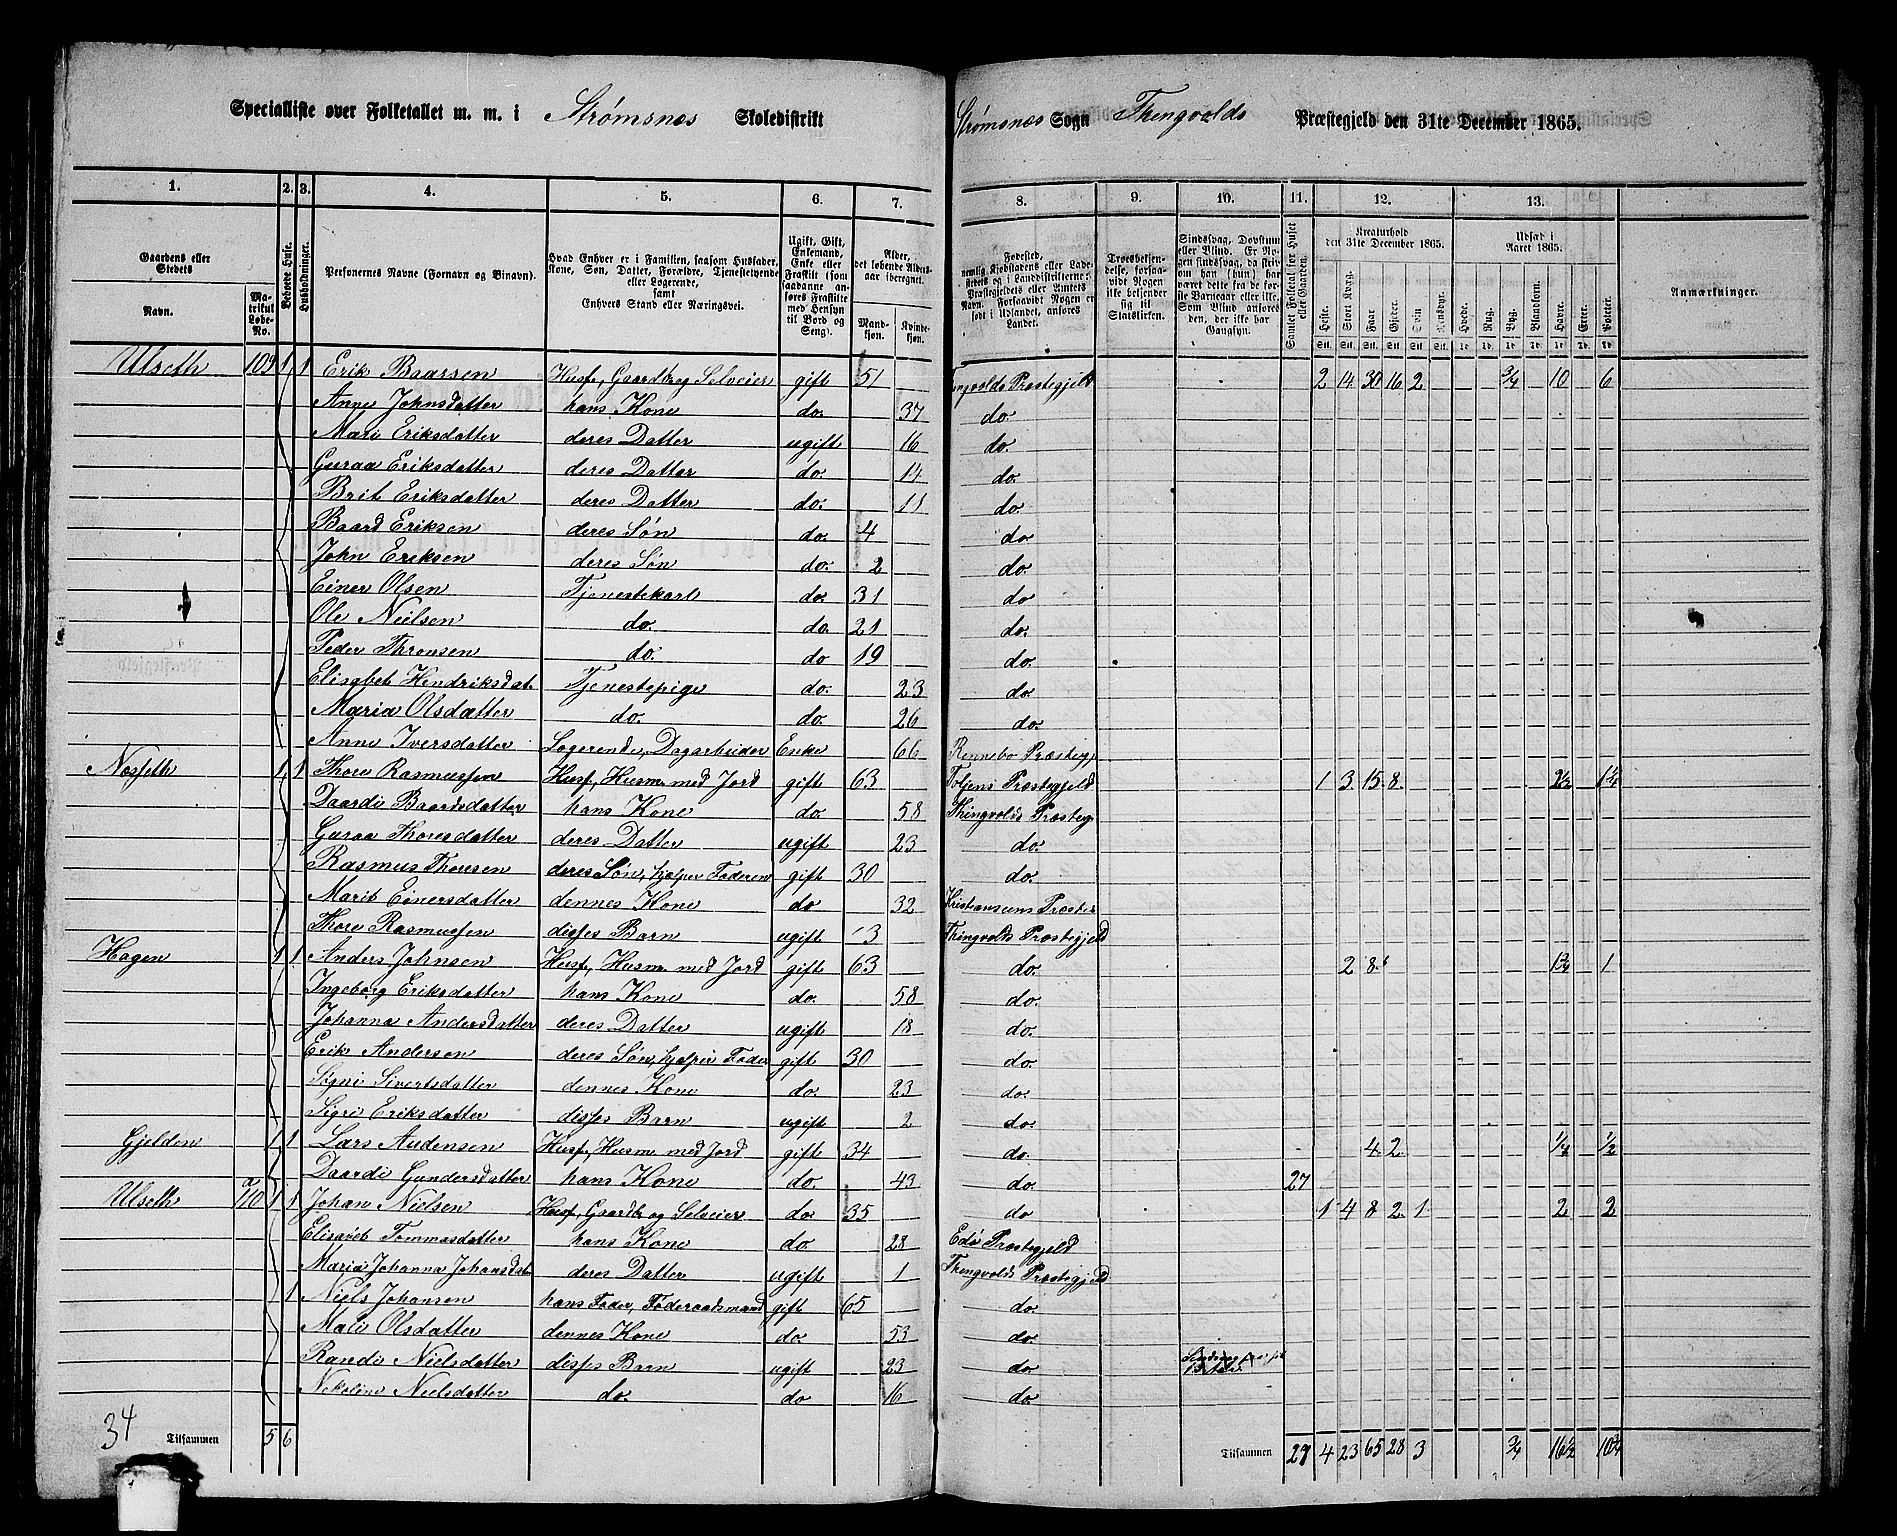 Specialliste over Folketallet m. m. i Strømsnes Skoledistrikt Strømsnes Sogn Thingvolds Præstegjeld den 31te December 1865.
1. 2. 3. 4. 5. 6. 7. 8. 9. 10. 11. 12. 13.
Gaardens eller Stedets
Navn.
Matrikul Løbe-No.
Beboede Huse.
Husholdninger.
Personernes Navne (Fornavn og Binavn).
Hvad Enhver er i Familien, saasom Husfader, Kone, Søn, Datter, Forældre, Tjenestetyende eller Logerende, samt Enhvers Stand eller Næringsvei.
Ugift, Gift, Enkemand, Enke eller Fraskilt (som saadanne anføres Fraskilte med Hensyn til Bord og Seng).
Alder, det løbende Aldersaar iberegnet.
Mandkjøn. Kvindekjøn.
Fødested, nemlig Kjøbstadens eller Ladestedets og i Landdistrikterne: Præstegjeldets eller Amtets Navn. Forsaavidt Nogen er født i Udlandet, anføres Landet.
Troesbekjendelse, forsaavidt Nogen ikke bekjender sig til Statskirken.
Sindssvag, Døvstum eller Blind.
Samlet Folketal for Huset eller Gaarden.
Kreaturhold den 31te December 1865.
Heste. Stort Kvæg. Faar. Gjeder. Svin. Rensdyr.
Udsæd i Aaret 1865.
Hvede. Rug. Byg. Blandkorn. Havre. Erter. Poteter.
Anmærkninger.
Ulseth 109 1 1 Erik Baarsen Husf., Gaardbr og Selveier gift 51 Thingvolds Præstegjeld 2 14 30 16 2 3/4 10 6
Anne Johnsdatter hans Kone do. 37 do.
Mari Eriksdatter deres Datter ugift 16 do.
Guraa Eriksdatter deres Datter do. 14 do.
Brit Eriksdatter deres Datter do. 11 do.
Baard Eriksen deres Søn do. 4 do
John Eriksen deres Søn do. 2 do.
Einer Olsen Tjenestekarl do. 31 do
Ole Nielsen do. do. 21 do.
Peder Thronsen do. do 19 do.
Elisabet Hendriksdat. Tjenestepige do. 23 do.
Maria Olsdatter do. do. 26 do.
Anne Iversdatter Logerende, Dagarbeider Enke 66 Rennebo Præstegj
Næsseth 1 1 Thore Rasmussen Husf., Husm. med Jord gift 63 Præstegjeld 1 3 15 8 2 1/2 1 1/4
Daardi Baardsdatter hans Kone do. 58 Thingvolds Præsteg
Guraa Thoresdatter deres Datter ugift 23 do.
Rasmus Thoresen deres Søn, hjelper Faderen gift 30 do.
Marit Einersdatter dennes Kone do 32 Kristiansunds Præste
Thore Rasmussen disses Barn ugift 3 Thingvolds Præstegjeld
Hagen 1 1 Anders Johnsen Husf., Husm. med Jord gift 63 do. 2 8 1 3/4 1
Ingeborg Eriksdatter hans Kone do. 58 do.
Johanna Andersdatter deres Datter ugift 18 do.
Erik Andersen deres Søn, hjelper Fader gift 30 do.
Signi Sivertsdatter dennes Kone do. 23 do.
Sigri Eriksdatter disses Barn ugift 2 do.
Gjelden 1 1 Lars Audensen Husf., Husm. med Jord gift 34 do. 4 2 1/2
Daardi Gundersdatter hans Kone do. 43 do. 27
Ulseth 110 a 1 1 Johan Nielsen Husf., Gaardbr og Selveier do. 35 do 1 4 8 2 1 2 2
Elisabet Tommasdatter hans Kone do. 28 Edø Præstegjeld
Maria Johanna Johansdat. deres Datter ugift 1 Thingvolds Præstegjeld
1 Niels Johansen hans Fader, Føderaadsmand gift 65 do.
Mali Olsdatter dennes Kone do. 53 do.
Randi Nielsdatter disses Barn ugift 23 do.
Nekoline Nielsdatter do. do 16 do.
34 Tilsammen 5 6 Tilsammen 27 4 23 65 28 3 3/4 16 1/2 10 3/4